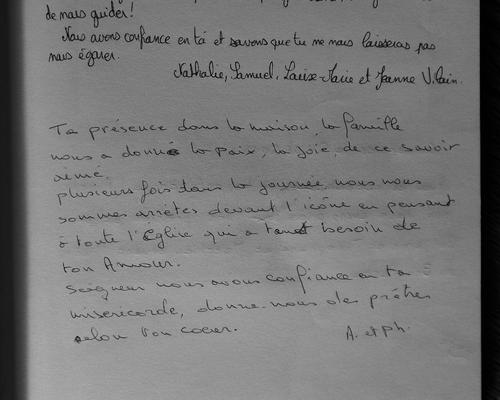 de nous guider!
Nous avons confiance en toi et savons que tu ne nous laisseras pas
nous égarer.
Nathalie, Samuel, Laure-Marie et Jeanne Vilain.
Ta présence dans la maison, la famille
nous a donné la paix, la joie, de ce savoir
aimé.
plusieurs fois dans la journée nous nous
sommes arrêtés devant l'icône en pensant
à toute l'Eglise qui a tant besoin de
ton Amour.
Seigneur nous avons confiance en ta
miséricorde, donne-nous des prêtres
selon ton coeur.
A. et Ph.